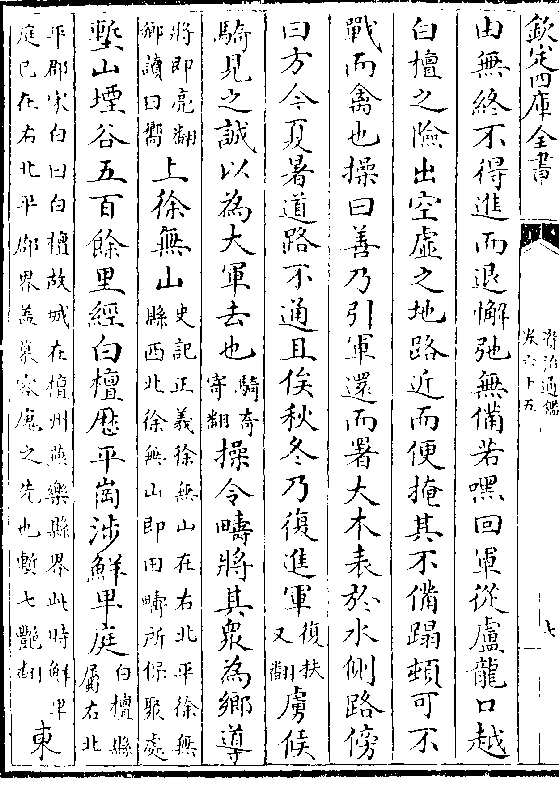 欽定四庫全書
資治通鑑
卷六十五
七
由無終不得進而退懈弛無備若嘿回軍從盧龍口越
白檀之險出空虛之地路近而便掩其不備蹋頓可不
戰而禽也操曰善乃引軍還而署大木表於水側路傍
曰方今夏暑道路不通且俟秋冬乃復進軍復扶又翻虜候
騎見之誠以為大軍去也騎奇寄翻操令疇將其衆為鄉導
將即亮翻鄉讀曰嚮上徐無山史記正義徐無山在右北平徐無縣西北徐無山即田疇所保聚處
塹山堙谷五百餘里經白檀歷平崗涉鮮卑庭白檀縣屬右北
平郡宋白曰白檀故城在檀州燕樂縣界此時鮮卑庭已在右北平郡界蓋慕容廆之先也塹七艷翻東